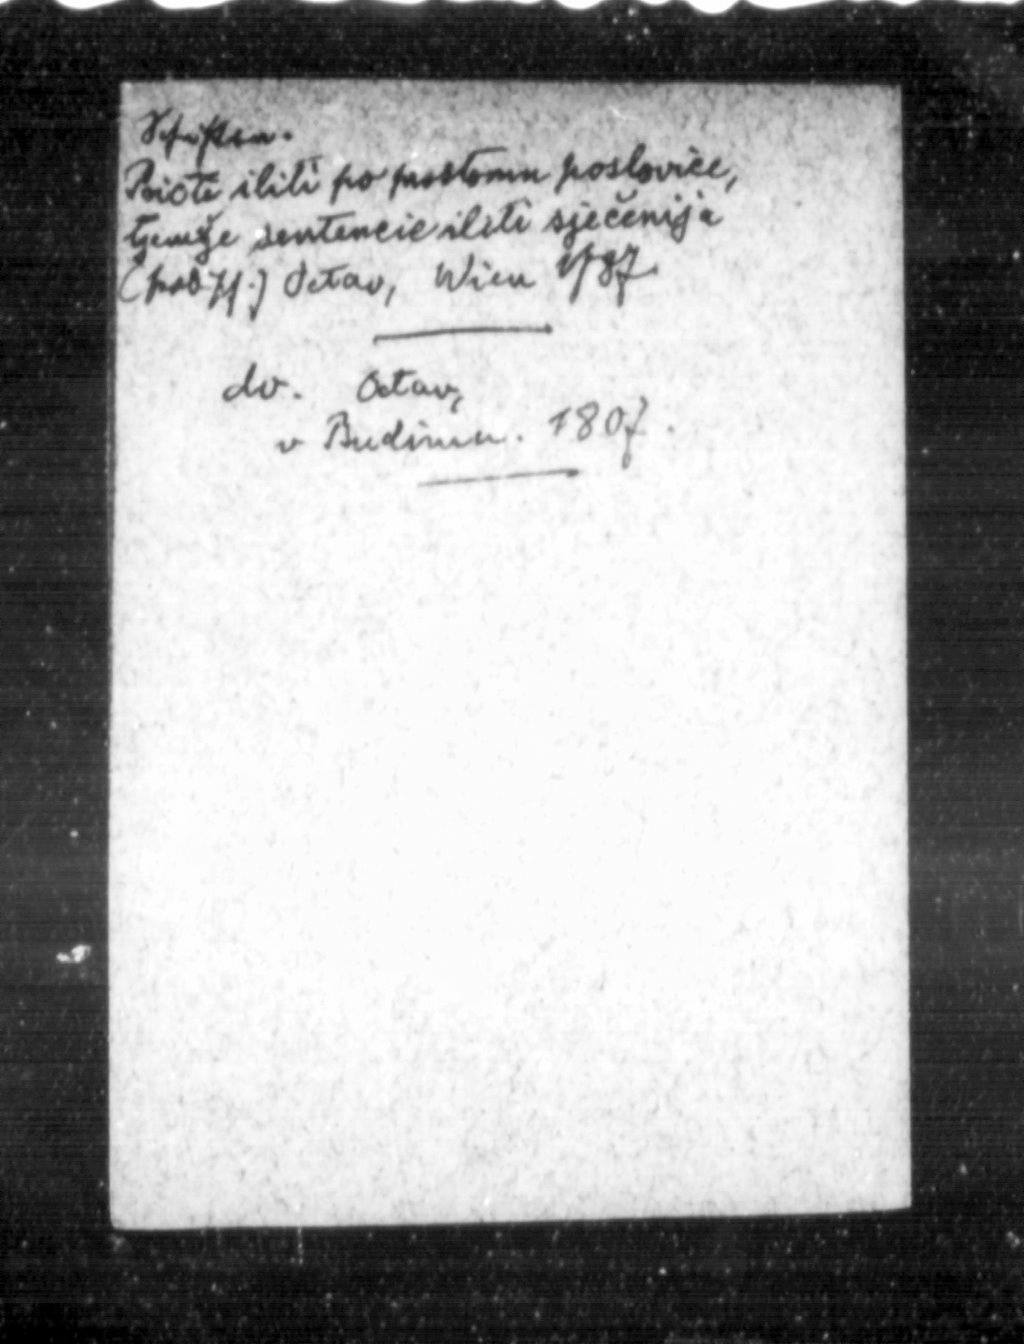 Schriften.
Pričte iliti po prostomu poslovice,
tjemže sentencie iliti rječenija
Octav, Wien 1787.
do. Octav,
v Budimu. 1807.